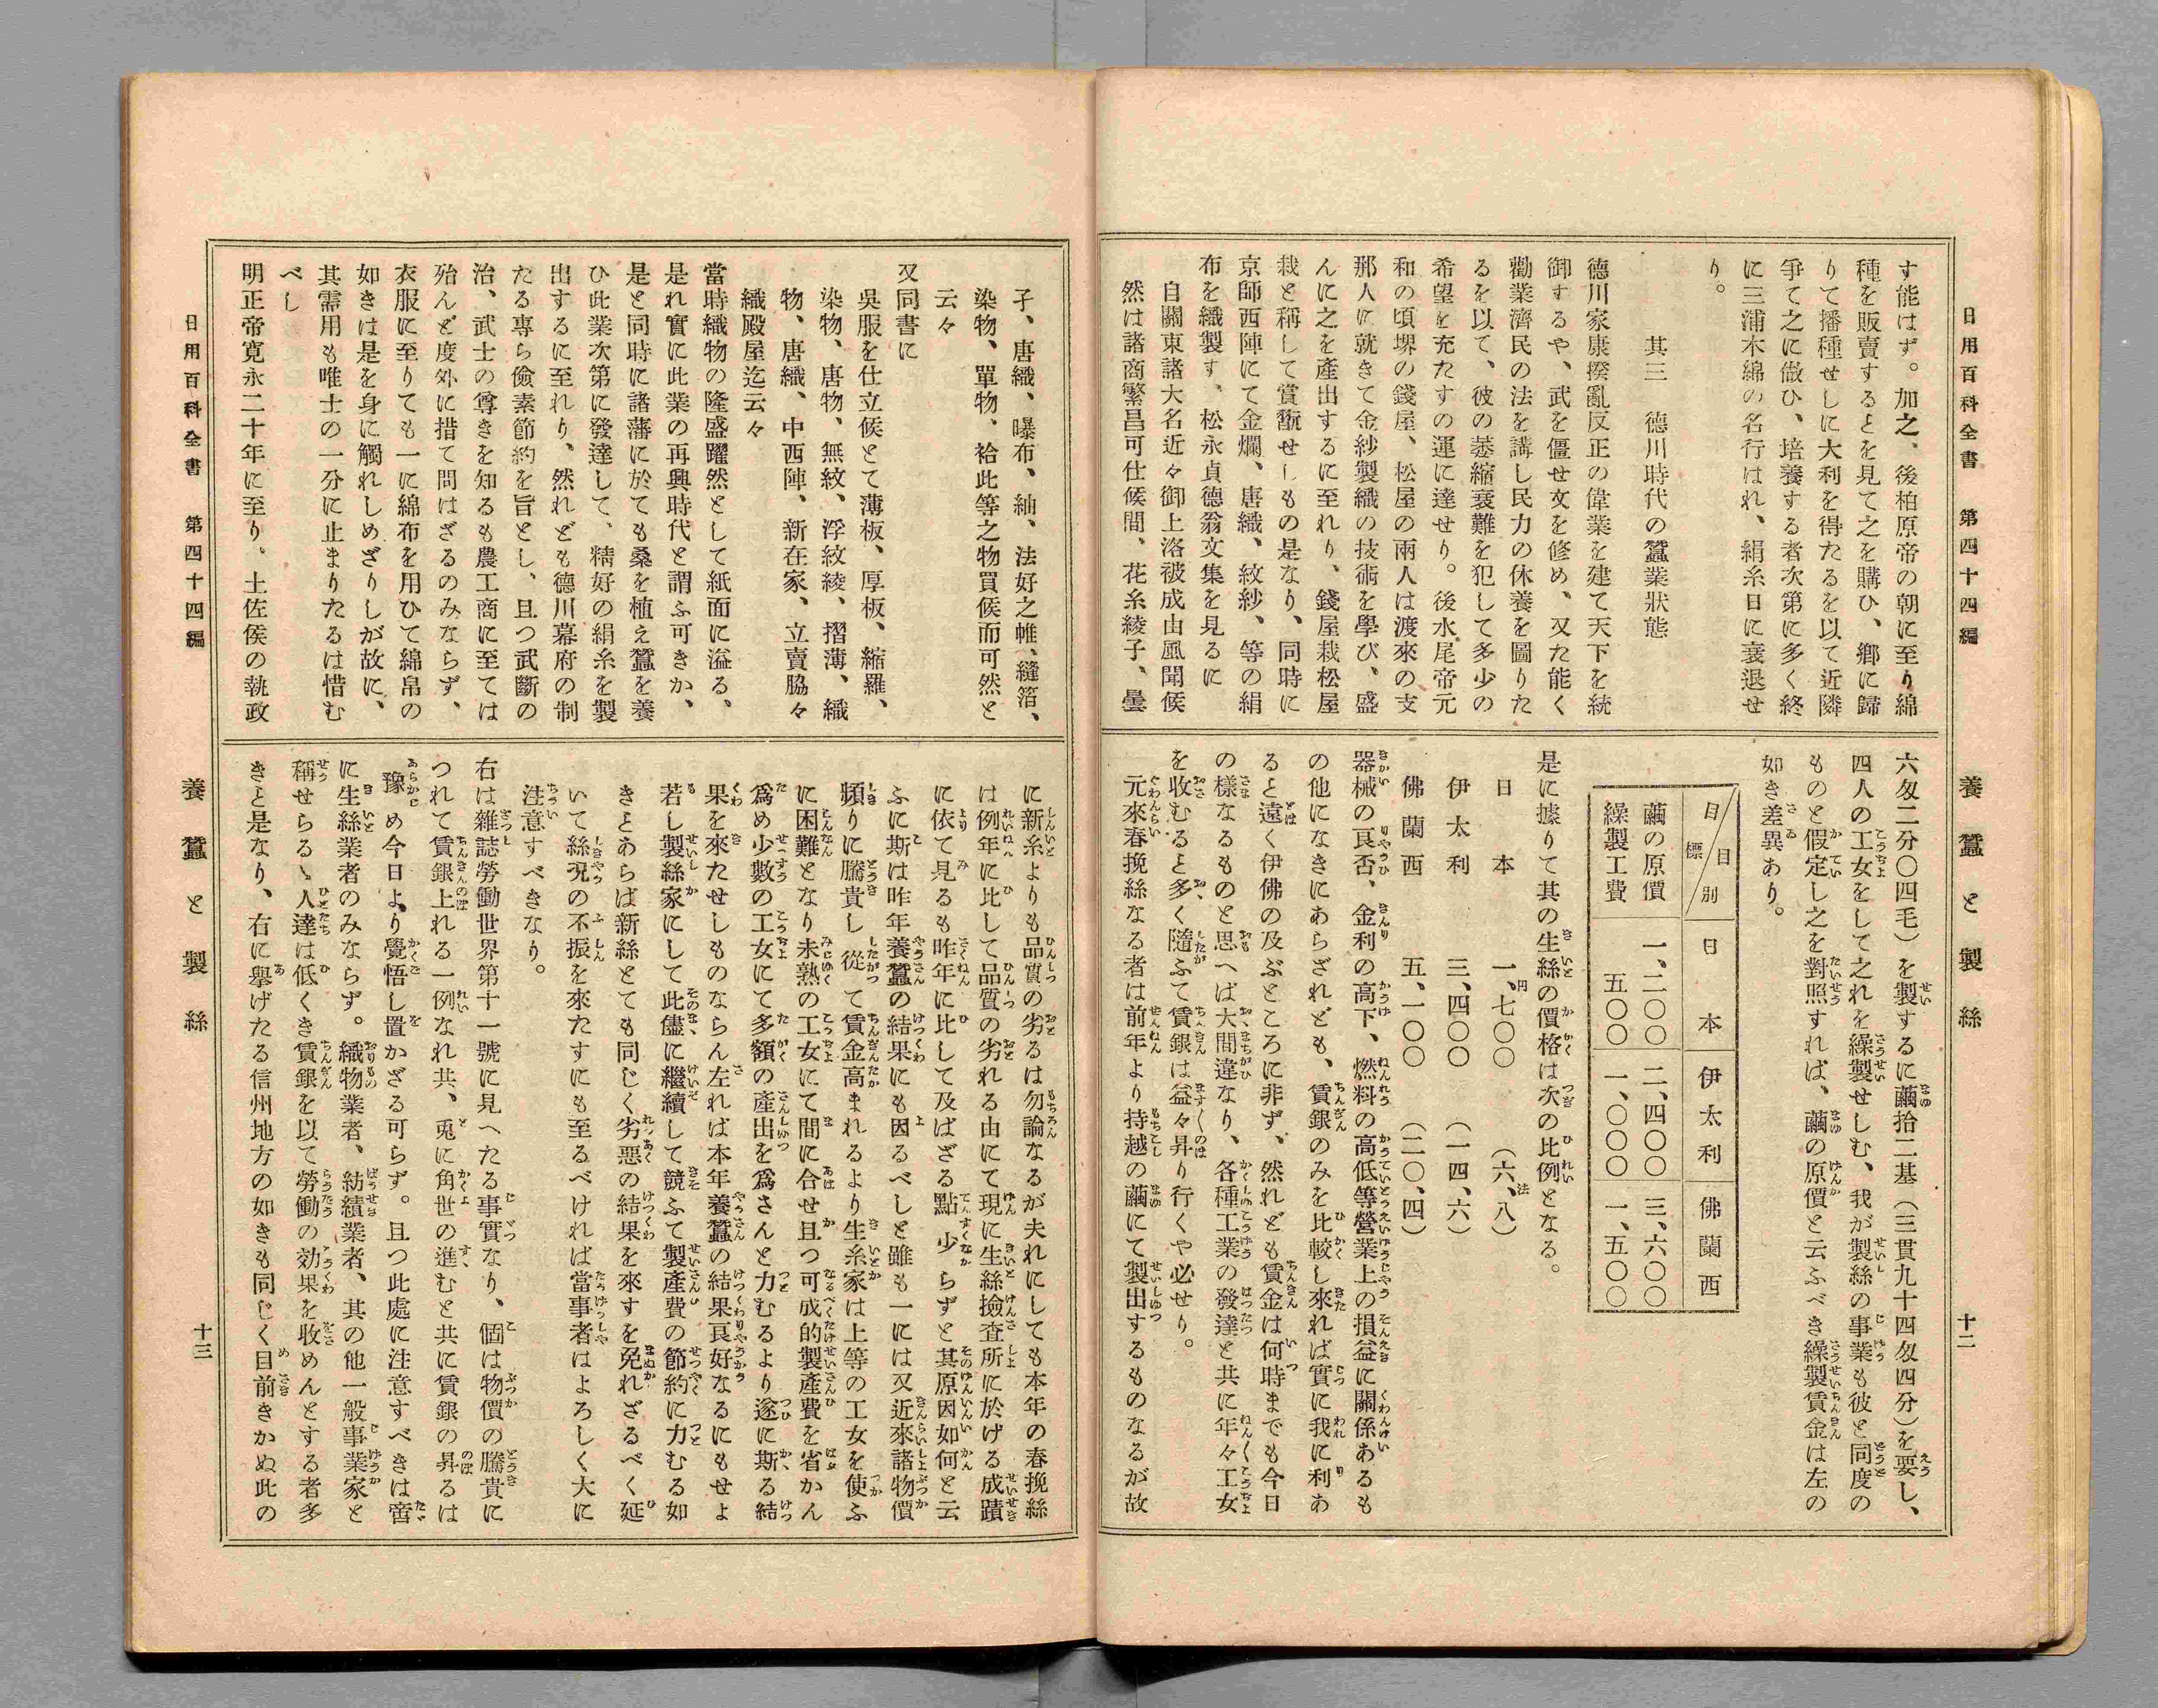 日用百科全書　第四十四編
養蠶と製絲
十二
す能はず。加之、後柏原帝の朝に至り綿
種を販賣するとを見て之を購ひ、鄕に歸
りて播種せしに大利を得たるを以て近隣
爭て之に倣ひ、培養する者次第に多く終
に三浦木綿の名行はれ、絹糸日に衰退せ
り。
其三　德川時代の蠶業狀態
德川家康撥亂反正の偉業を建て天下を統
御するや、武を偃せ文を修め、又た能く
勸業濟民の法を講し民力の休養を圖りた
るを以て、彼の萎縮衰難を犯して多少の
希望を充たすの運に達せり。後水尾帝元
和の頃堺の錢屋、松屋の兩人は渡來の支
那人に就きて金紗製織の技術を學び、盛
んに之を產出するに至れり、錢屋栽松屋
栽と稱して賞翫せしもの是なり、同時に
京師西陣にて金爛、唐織、紋紗、等の絹
布を織製す、松永貞德翁文集を見るに
自關東諸大名近々御上洛被成由風聞候
然は諸商繁昌可仕候間、花糸綾子、曇
六匁二分〇四毛）を製するに繭拾二基（三貫九十四匁四分）を要し、
四人の工女をして之れを繰製せしむ、我が製絲の事業も彼と同度の
ものと假定し之を對照すれば、繭の原價と云ふべき繰製賃金は左の
如き差異あり。
目標／目別　日本　伊太利　佛蘭西
繭の原價　一、二〇〇　二、四〇〇　三、六〇〇
繰製工費　五〇〇　一、〇〇〇　一、五〇〇
是に據りて其の生絲の價格は次の比例となる。
日本　一、七〇〇　（六、八）
伊太利　三、四〇〇　（一四、六）
佛蘭西　五、一〇〇　（二〇、四）
器械の良否、金利の高下、燃料の高低等營業上の損益に關係あるも
の他になきにあらざれども、賃銀のみを比較し來れば實に我に利あ
ると遠く伊佛の及ぶところに非ず、然れども賃金は何時までも今日
の樣なるものと思へば大間違なり、各種工業の發達と共に年々工女
を收むると多く隨ふて賃銀は益々昇り行くや必せり。
元來春挽絲なる者は前年より持越の繭にて製出するものなるが故
孑、唐織、曝布、紬、法好之帷、縫箔、
染物、單物、袷此等之物買候而可然と
云々
又同書に
吳服を仕立候とて薄板、厚板、縮羅、
染物、唐物、無紋、浮紋綾、摺薄、織
物、唐織、中西陣、新在家、立賣脇々
織殿屋迄云々
當時織物の隆盛躍然として紙面に溢る、
是れ實に此業の再興時代と謂ふ可きか、
是と同時に諸藩に於ても桑を植え蠶を養
ひ此業次第に發達して、精好の絹糸を製
出するに至れり、然れども德川幕府の制
たる專ら儉素節約を旨とし、且つ武斷の
治、武士の尊きを知るも農工商に至ては
殆んど度外に措て問はざるのみならず、
衣服に至りても一に綿布を用ひて綿帛の
如きは是を身に觸れしめざりしが故に、
其需用も唯士の一分に止まりたるは惜む
べし
明正帝寬永二十年に至り。土佐侯の執政
に新糸よりも品質の劣るは勿論なるが夫れにしても本年の春挽絲
は例年に比して品質の劣れる由にて現に生絲撿査所に於ける成蹟
に依て見るも昨年に比して及ばざる點少らずと其原因如何と云
ふに斯は昨年養蠶の結果にも因るべしと雖も一には又近來諸物價
頻りに騰貴し從て賃金高まれるより生糸家は上等の工女を使ふ
に困難となり未熟の工女にて間に合せ且つ可成的製產費を省かん
爲め少數の工女にて多額の產出を爲さんと力むるより遂に斯る結
果を來たせしものならん左れば本年養蠶の結果良好なるにもせよ
若し製絲家にして此儘に繼續して競ふて製產費の節約に力むる如
きとあらば新絲とても同じく劣惡の結果を來すを免れざるべく延
いて絲況の不振を來たすにも至るべければ當事者はよろしく大に
注意すべきなり。
右は雜誌勞働世界第十一號に見へたる事實なり、個は物價の騰貴に
つれて賃銀上れる一例なれ共、兎に角世の進むと共に賃銀の昇るは
豫め今日より覺悟し置かざる可らず。且つ此處に注意すべきは啻
に生絲業者のみならず。織物業者、紡績業者、其の他一般事業家と
稱せらるゝ人達は低くき賃銀を以て勞働の効果を收めんとする者多
きと是なり、右に擧げたる信州地方の如きも同じく目前きかぬ此の
日用百科全書　第四十四編
養蠶と製絲
十三